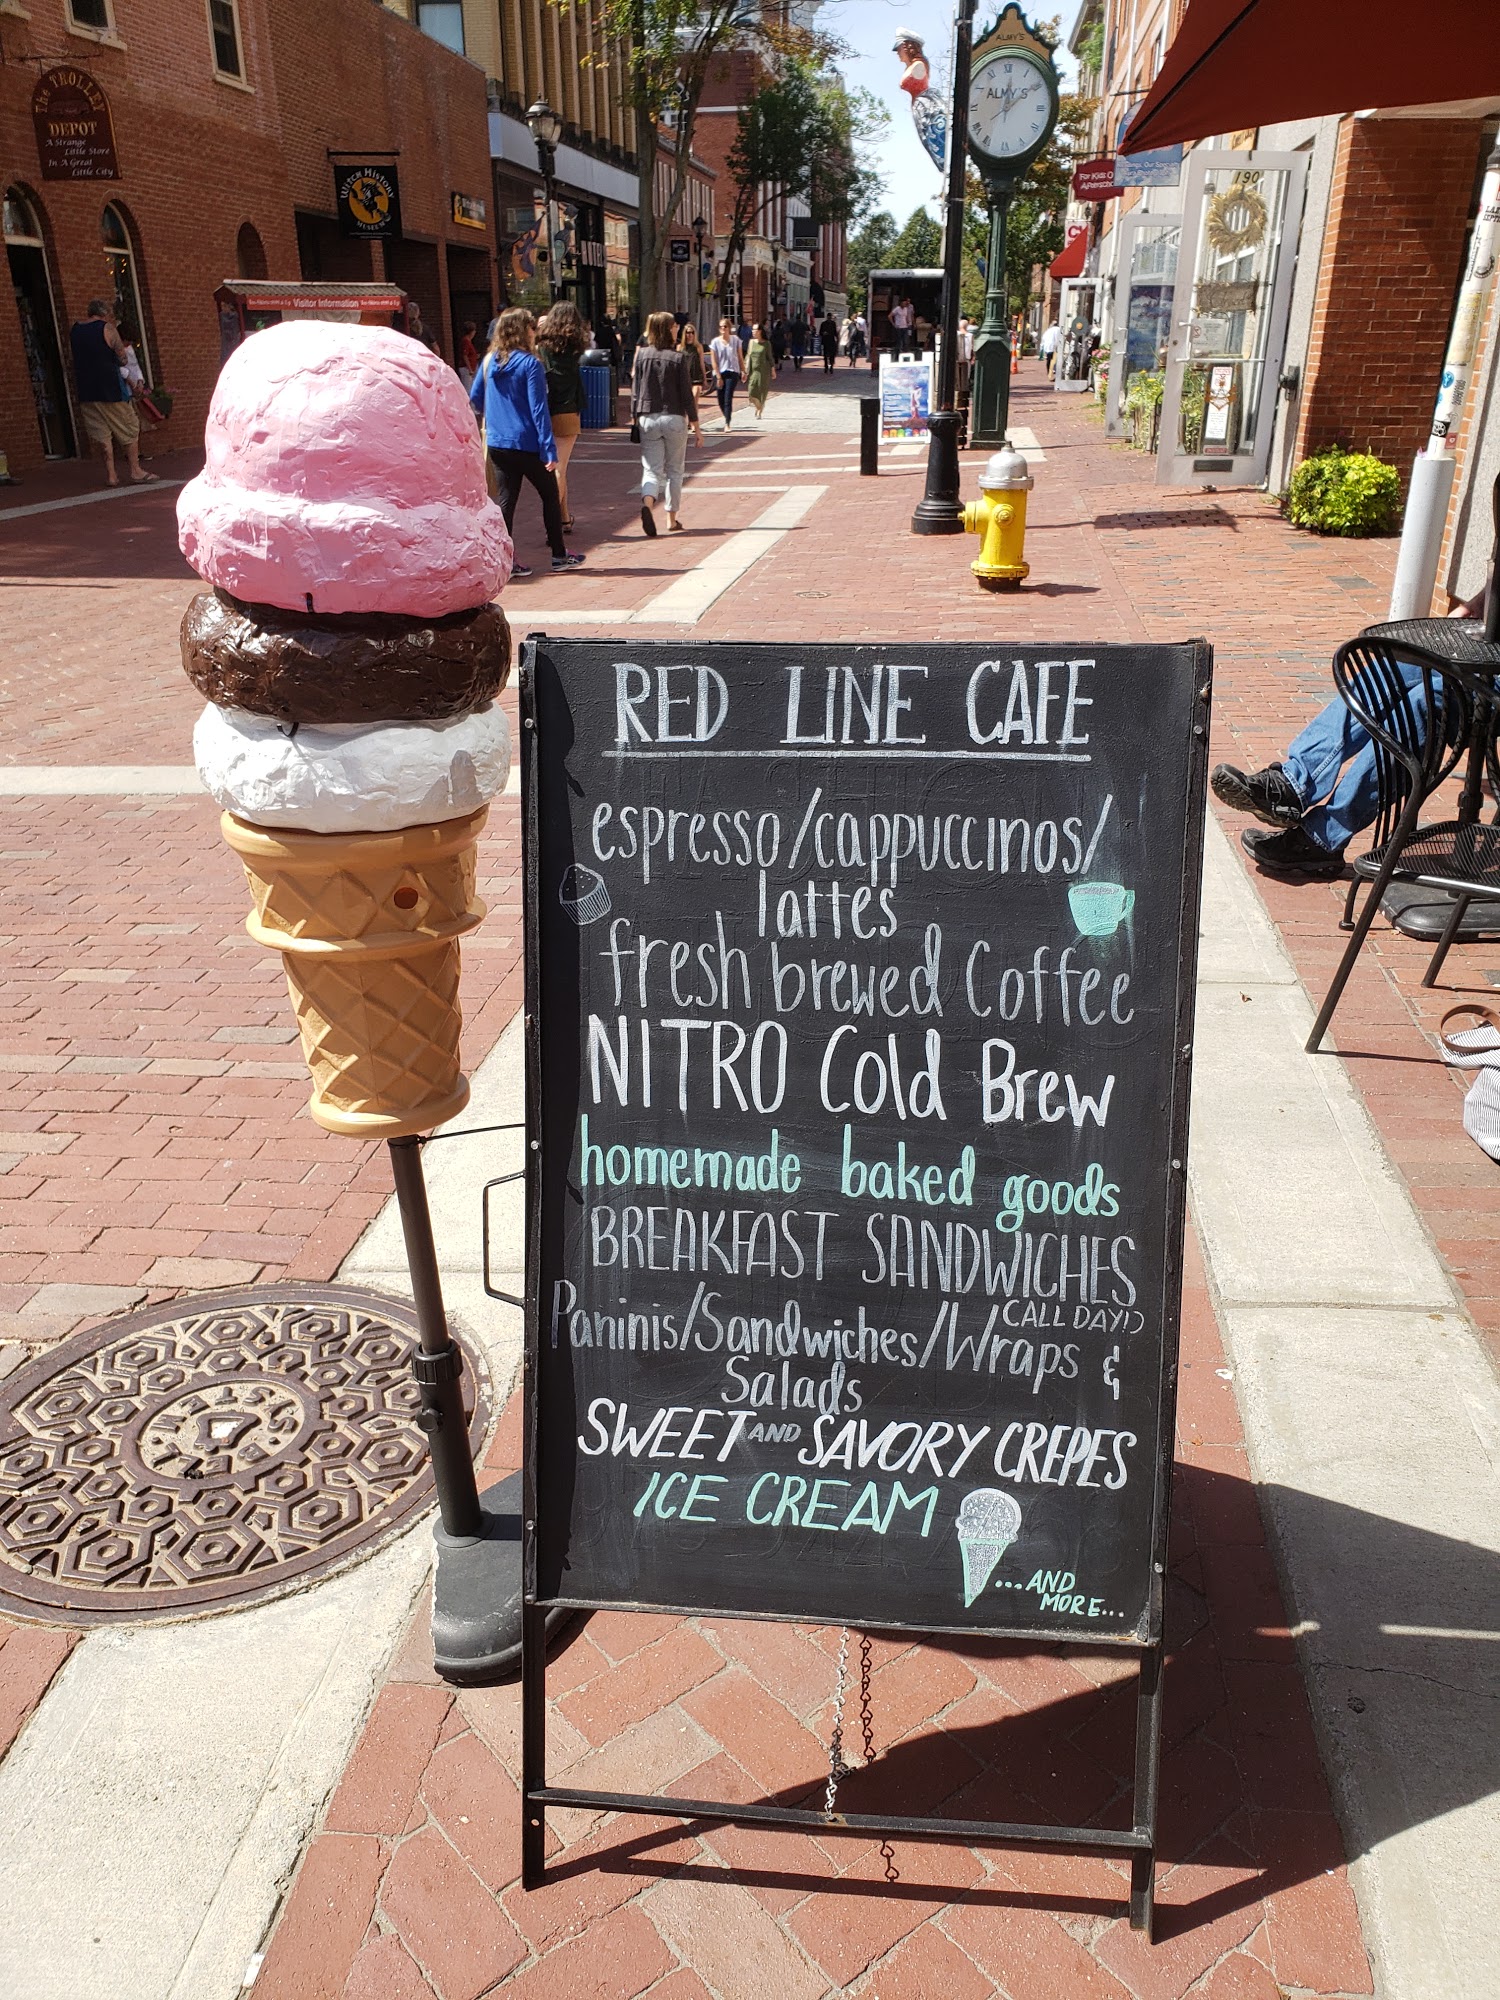 The TROLLEY
DEPOT
A Strange
Little Store
In A Great
Little City
Witch History
MUSEUM
Visitor Information
ALMY'S
ALMY'S
For Kids
190
RED LINE CAFE
espresso/cappuccinos/
lattes
fresh brewed Coffee
NITRO Cold Brew
homemade baked goods
BREAKFAST SANDWICHES
(ALL DAY!)
Paninis/Sandwiches/Wraps &
Salads
SWEET AND SAVORY CREPES
ICE CREAM
...AND
MORE...